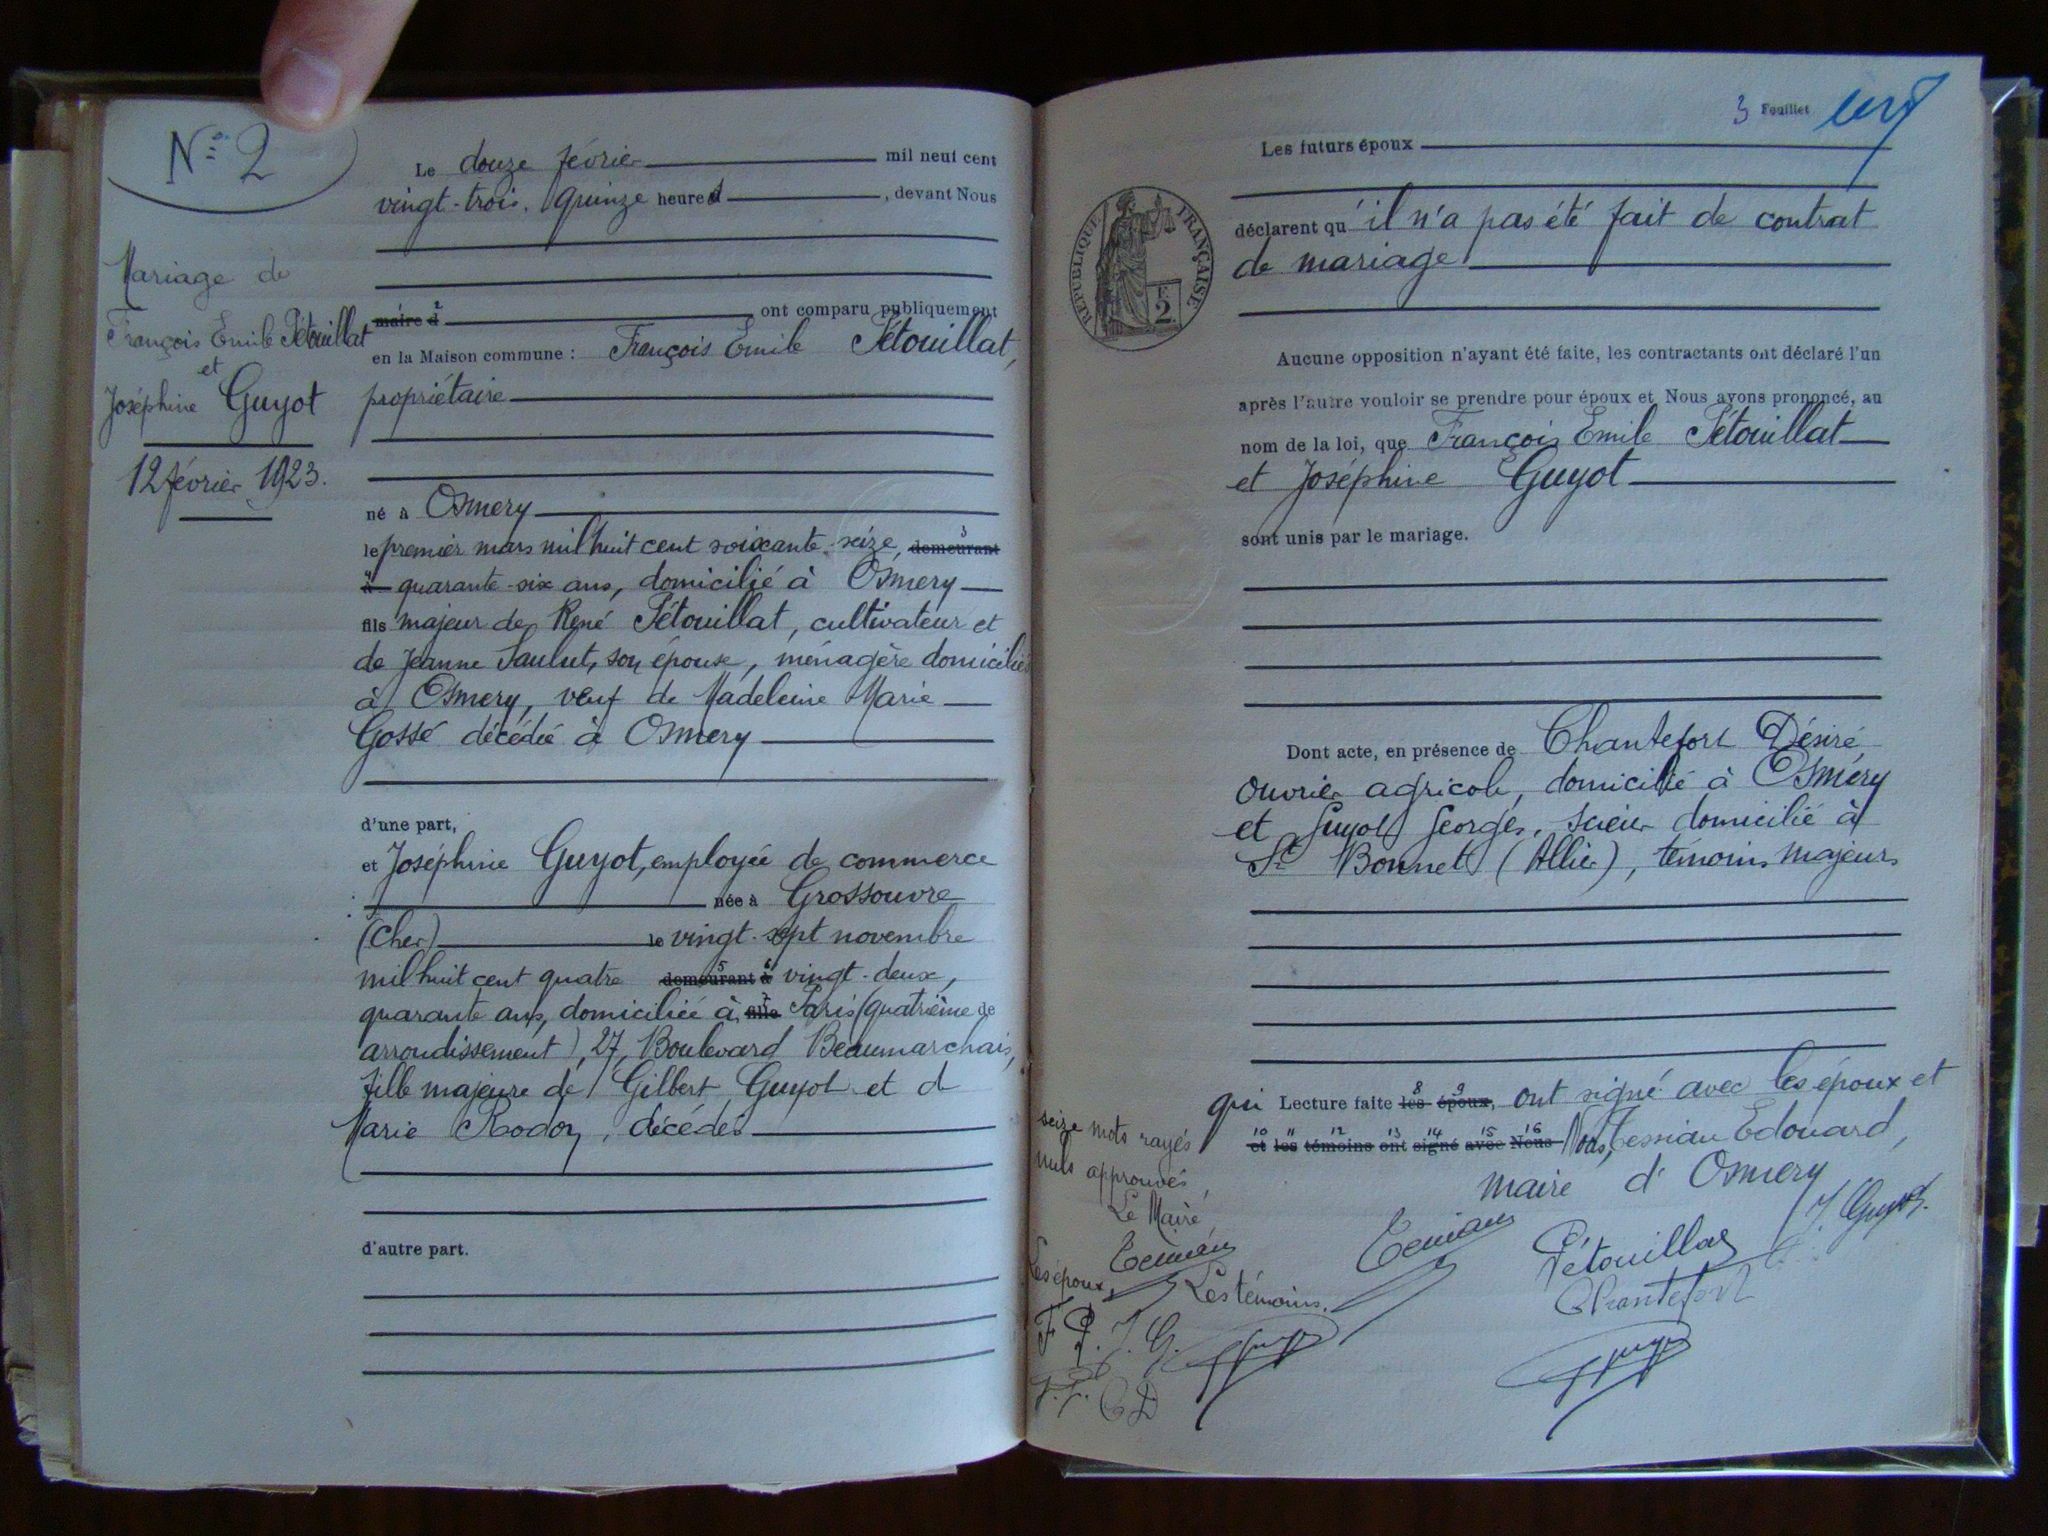 N° 2
Mariage de
François Emile Pétouillat
et
Joséphine Guyot
12 février 1923.
Le douze février mil neuf cent
vingt-trois, quinze heures, devant Nous
maire d 2 ont comparu publiquement
en la Maison commune : François Emile Pétouillat,
propriétaire
né à Osmery
le premier mars mil huit cent soixante-seize, demeurant 3
à 4 quarante-six ans, domicilié à Osmery
fils majeur de René Pétouillat, cultivateur et
de Jeanne Saulut, son épouse, ménagère domiciliés
à Osmery, veuf de Madeleine Marie
Gossé décédée à Osmery
d'une part,
et Joséphine Guyot, employée de commerce
née à Grossouvre
(Cher) le vingt-sept novembre
mil huit cent quatre demeurant 5 à 6 vingt-deux,
quarante ans, domiciliée à fille 7 Paris (quatrième de
arrondissement), 27, Boulevard Beaumarchais,
fille majeure de Gilbert Guyot et d
Marie Rodon, décédés
d'autre part.
3 Feuillet
RÉPUBLIQUE FRANÇAISE
F
2
Les futurs époux
déclarent qu'il n'a pas été fait de contrat
de mariage
Aucune opposition n'ayant été faite, les contractants ont déclaré l'un
après l'autre vouloir se prendre pour époux et Nous avons prononcé, au
nom de la loi, que François Emile Pétouillat
et Joséphine Guyot
sont unis par le mariage.
Dont acte, en présence de Chantefort Désiré
ouvrier agricole, domicilié à Osmery
et Guyot Georges, scieur domicilié à
St Bonnet (Allier), témoins majeurs
qui Lecture faite les 8 époux, 9 ont signé avec les époux et
et 10 les 11 témoins 12 ont 13 signé 14 avec 15 Nous 16 Nous, Tessiau Edouard,
maire d'Osmery
seize mots rayés
nuls approuvés,
Le Maire,
Tessiau
Les époux,
Les témoins.
F P. J. G.
Guyot
C D
Tessiau
Pétouillat
J. Guyot.
Chantefort
Guyot